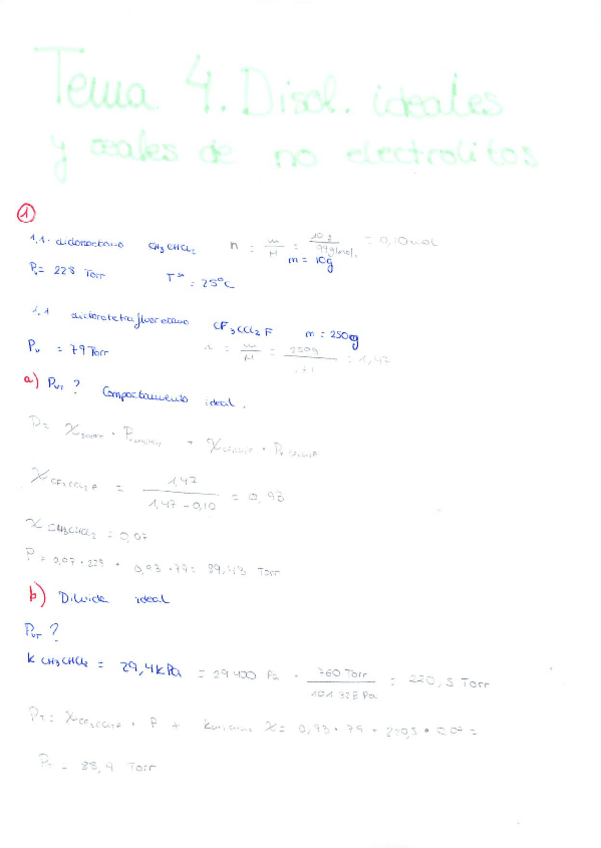 Tema 4. Disol. ideales
y reales de no electrolitos
1
1,1- dicloroetano CH3CHCl2 n = m/M = 10g/99g/mol = 0,10mol
m = 10g
Pv = 228 Torr Tª = 25ºC
1,1 diclorotetrafluoroetano CF3CCl2F m = 250g
Pv = 79 Torr n = m/M = 250g/171 = 1,47
a) PVT? Comportamiento ideal.
P =
XCF3CCl2F = 1,47/1,47-0,10 = 0,93
XCH3CHCl2 = 0,07
P = 0,07 · 228 + 0,93 · 79 = 89,43 Torr
b) Diluida ideal
PVT?
k CH3CHCl2 = 29,4kPa = 29400 Pa · 760 Torr/101328 Pa = 220,5 Torr
PT = XCF3CCl2F · P + k X = 0,93 · 79 + 220,5 · 0,07 =
PT = 88,9 Torr